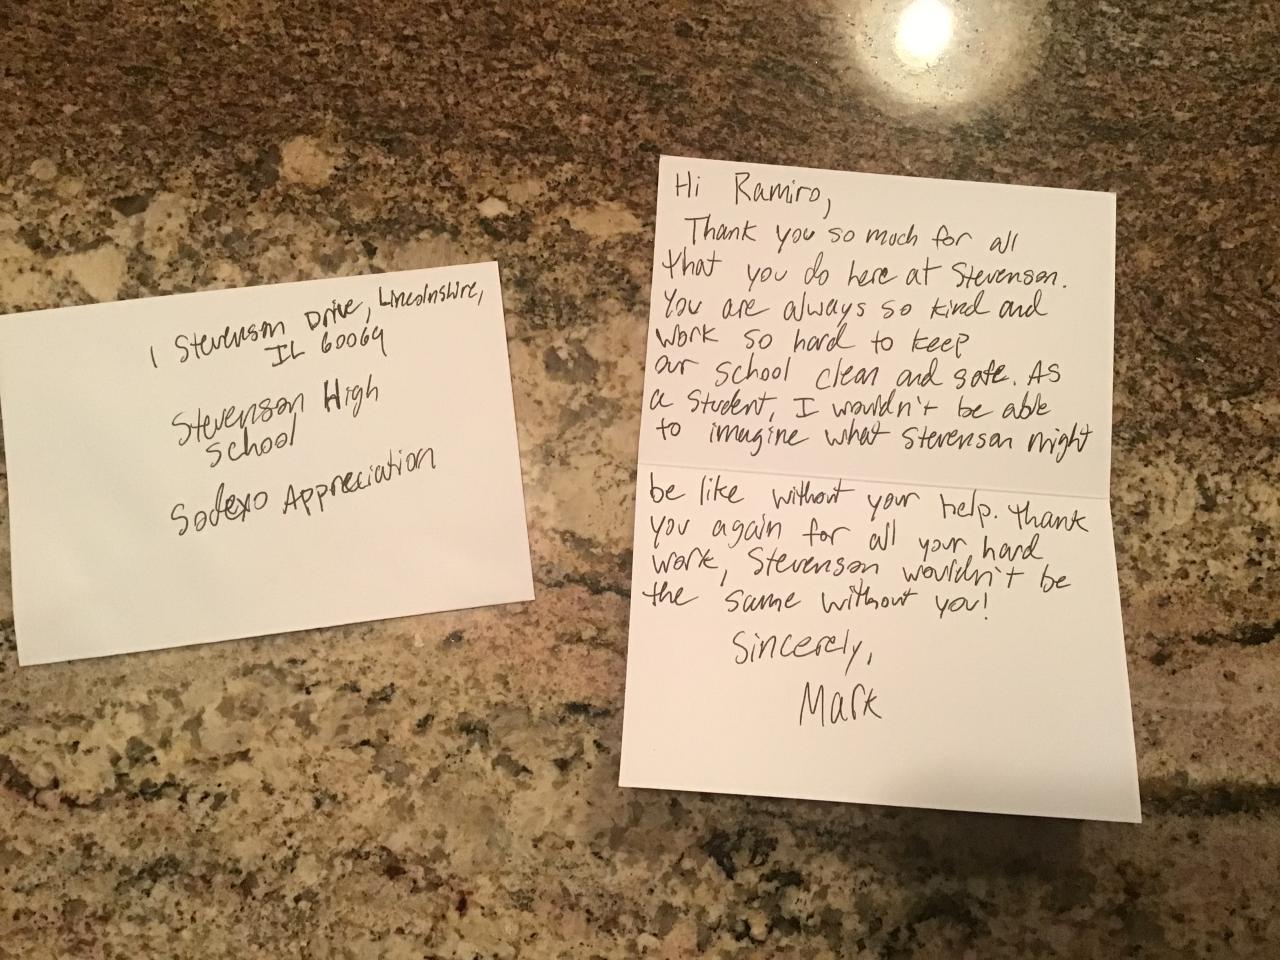 1 Stevenson Drive, Lincolnshire,
IL 60069
Stevenson High
School
Sodexo Appreciation
Hi Ramiro,
Thank you so much for all
that you do here at Stevenson.
You are always so kind and
work so hard to keep
our school clean and safe. As
a student, I wouldn't be able
to imagine what Stevenson might
be like without your help. Thank
you again for all your hard
work, Stevenson wouldn't be
the same without you!
Sincerely,
Mark